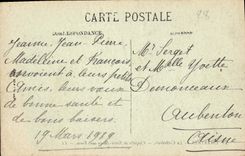 CARTE POSTALE
CORRESPONDANCE
Jeanne, Jean, Pierre,
Madeleine et François
envoient à leurs petits
Amis, leurs vœux
de bonne santé et
de bons baisers.
19 Mars 1919
Mr Serget
et Melle Yvette
Demonceaux
Aubenton
Aisne